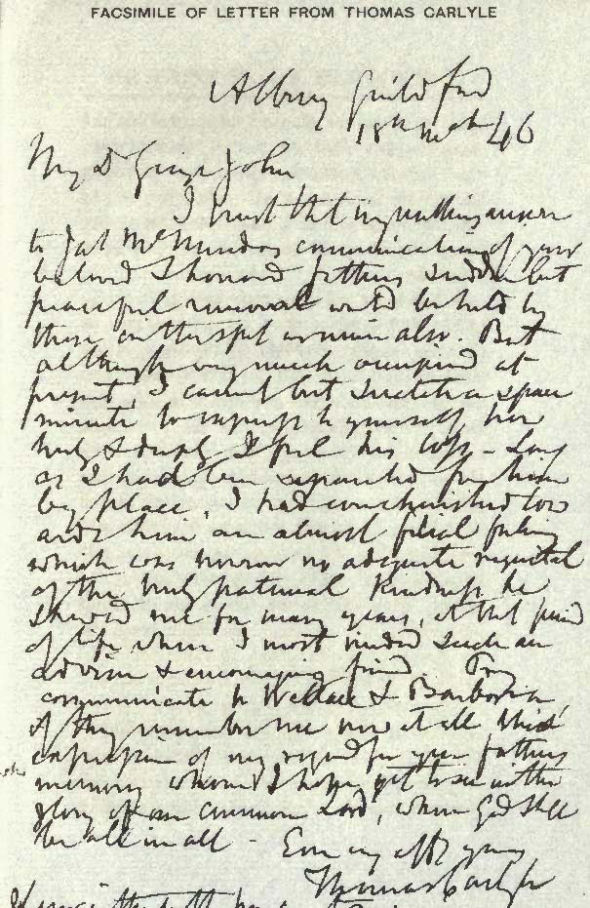 FACSIMILE OF LETTER FROM THOMAS CARLYLE
Albury Guildford
18th Mch 46
My D George John
I trust that my answer
to communication of your
beloved & honored father's sudden but
peaceful removal would be held by
those also. But
although very much occupied at
present, I cannot but snatch a spare
minute to express to yourself how
truly & deeply I feel his loss – Long
as I had been separated from him
by place, I had tow
ards him an almost filial feeling
which was however no adequate requital
of the truly paternal kindness he
showed me for many years, at that period
of life when I most needed such an
adviser & encouraging friend. Pray
communicate to Wallace & Barbara
if they remember me now at all this
expression of my regard for your father's
memory whom I hope yet to see in the
glory of our common Lord, when God shall
be all in all – Ever my affte yours
Thomas Carlyle